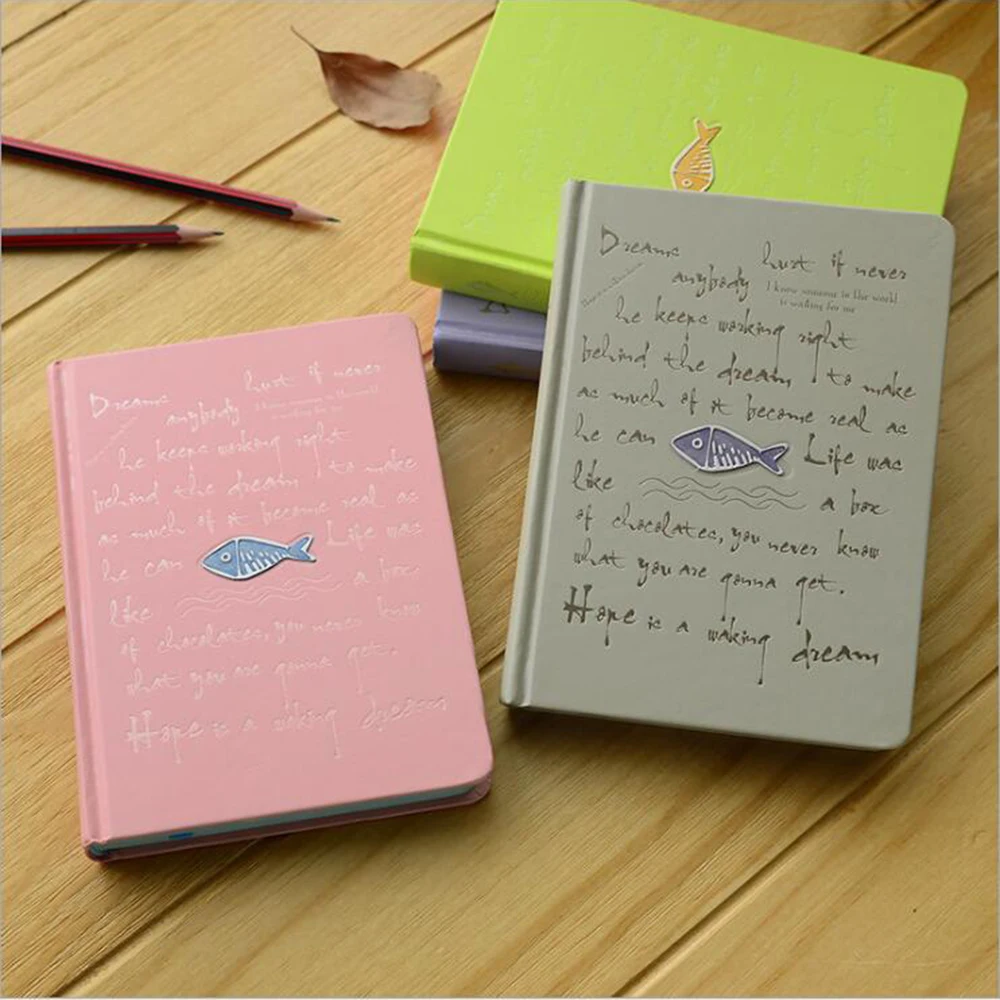 Dreams hurt if never
anybody I know someone in the world
is waiting for me
he keeps working right
behind the dream to make
as much of it become real as
he can Life was
like a box
of chocolates, you never know
what you are gonna get.
Hope is a waking dream
Dreams hurt if never
anybody I know someone in the world
is waiting for me
he keeps working right
behind the dream to make
as much of it become real as
he can Life was
like a box
of chocolates, you never know
what you are gonna get.
Hope is a waking dream